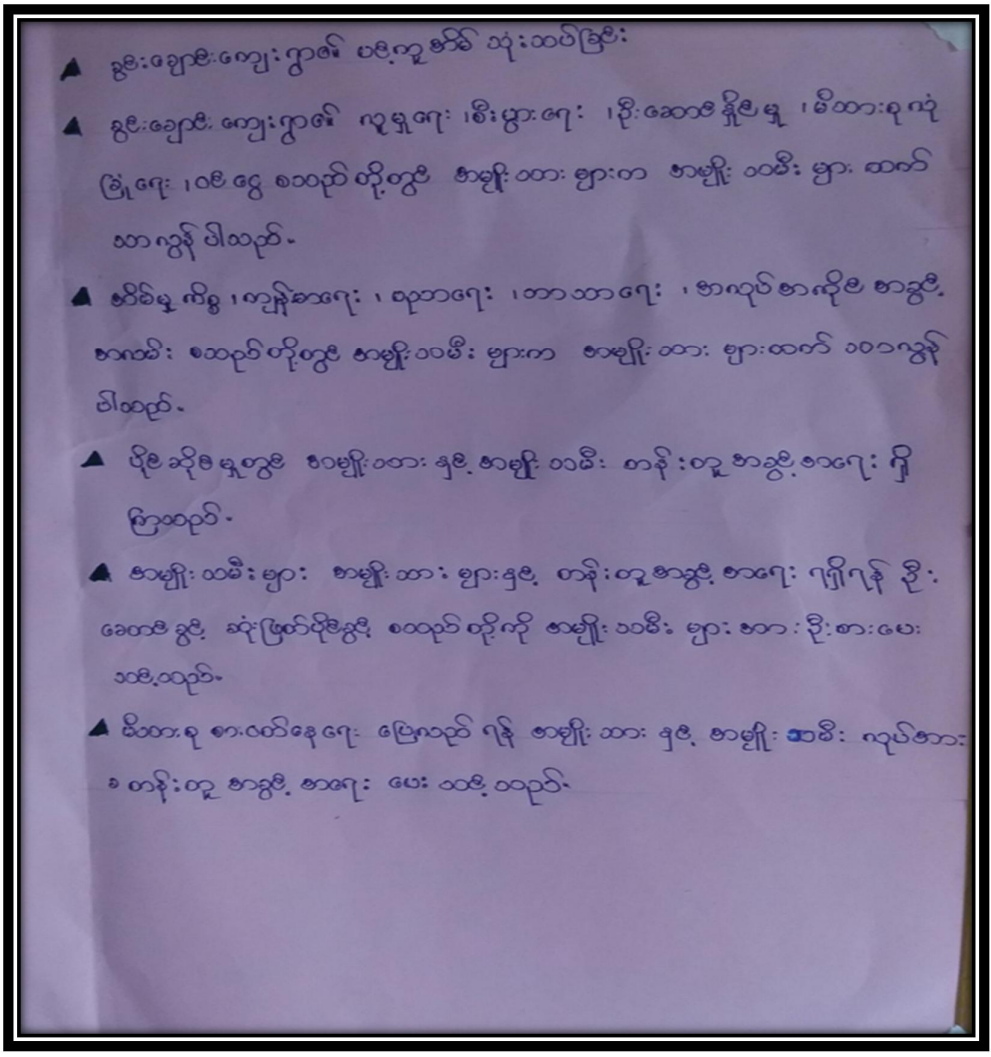 ▲ ခွင်းချောင်းကျေးရွာ၏ ပင့်ကူအိမ် သုံးသပ်ခြင်း
▲ ခွင်းချောင်း ကျေးရွာ၏ လူမှုရေး ၊စီးပွားရေး ၊ဦးဆောင်နိုင်မှု ၊မိသားစုလုံ
ခြုံရေး ၊ဝင်ငွေ စသည်တို့တွင် အမျိုးသား များက အမျိုးသမီး များ ထက်
သာလွန် ပါသည်။
▲ အိမ်မှုကိစ္စ ၊ကျန်းမာရေး ၊ ပညာရေး ၊ဘာသာရေး ၊အလုပ်အကိုင် အခွင့်
အလမ်း စသည်တို့တွင် အမျိုးသမီး များက အမျိုးသား များထက် သာလွန်
ပါသည်။
▲ ပိုင်ဆိုင်မှုတွင် အမျိုးသား နှင့် အမျိုးသမီး တန်းတူ အခွင့်အရေး ရှိ
ကြသည်။
▲ အမျိုးသမီးများ အမျိုးသား များနှင့် တန်းတူအခွင့် အရေး ရရှိရန် ဦး
ခေတင်ခွင့် ဆုံးဖြတ်ပိုင်ခွင့် စသည်တို့ကို အမျိုးသမီး များ အား ဦးစားပေး
သင့်သည်။
▲ မိသားစု စားဝတ်နေရေး ပြေလည် ရန် အမျိုးသား နှင့် အမျိုး သမီး လုပ်အား
ခ တန်းတူ အခွင့် အရေး ပေး သင့်သည်။